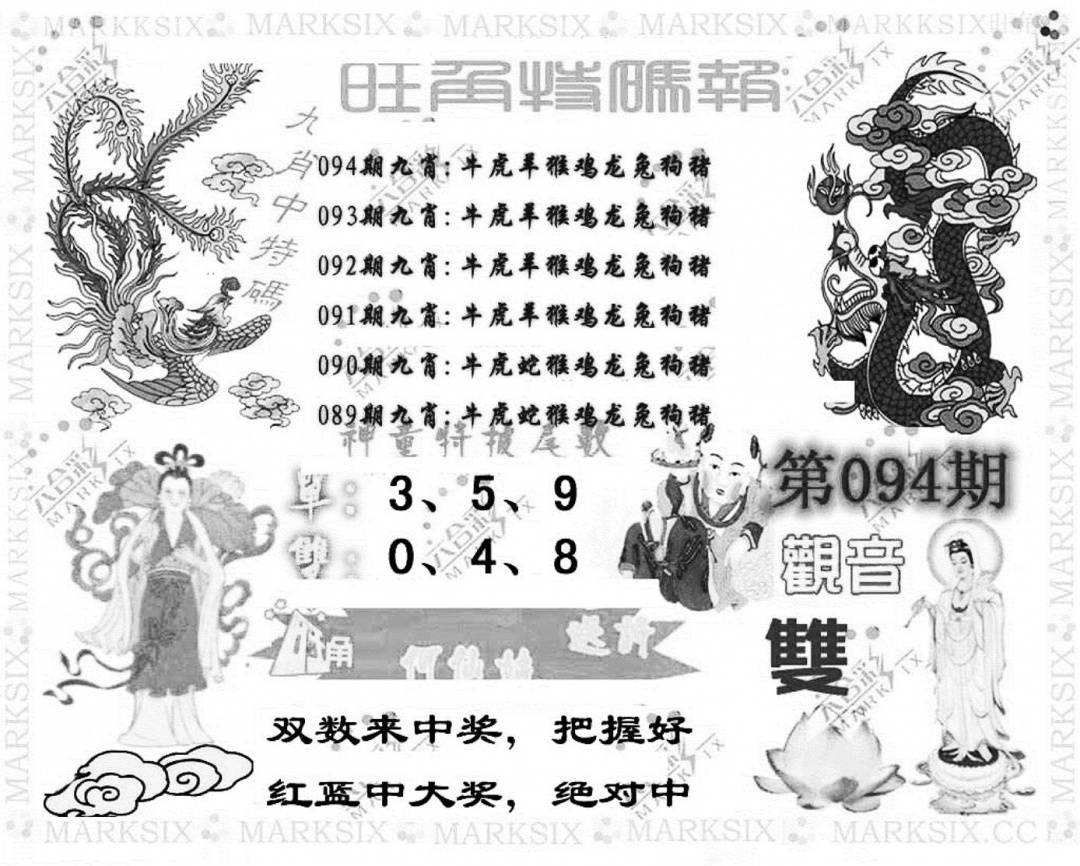 MARKKSIX MARKSIX MARKSIX MARKSIX MARKKSIX
旺角特碼報
九肖中特碼
094期九肖:牛虎羊猴鸡龙兔狗猪
093期九肖:牛虎羊猴鸡龙兔狗猪
092期九肖:牛虎羊猴鸡龙兔狗猪
091期九肖:牛虎羊猴鸡龙兔狗猪
090期九肖:牛虎蛇猴鸡龙兔狗猪
089期九肖:牛虎蛇猴鸡龙兔狗猪
神童特报尾数
單: 3、5、9
雙: 0、4、8
第094期
觀音
雙
何仙姑
双数来中奖,把握好
红蓝中大奖,绝对中
MARKSIX MARKSIX MARKSIX MARKSIX MARKSIX.CC